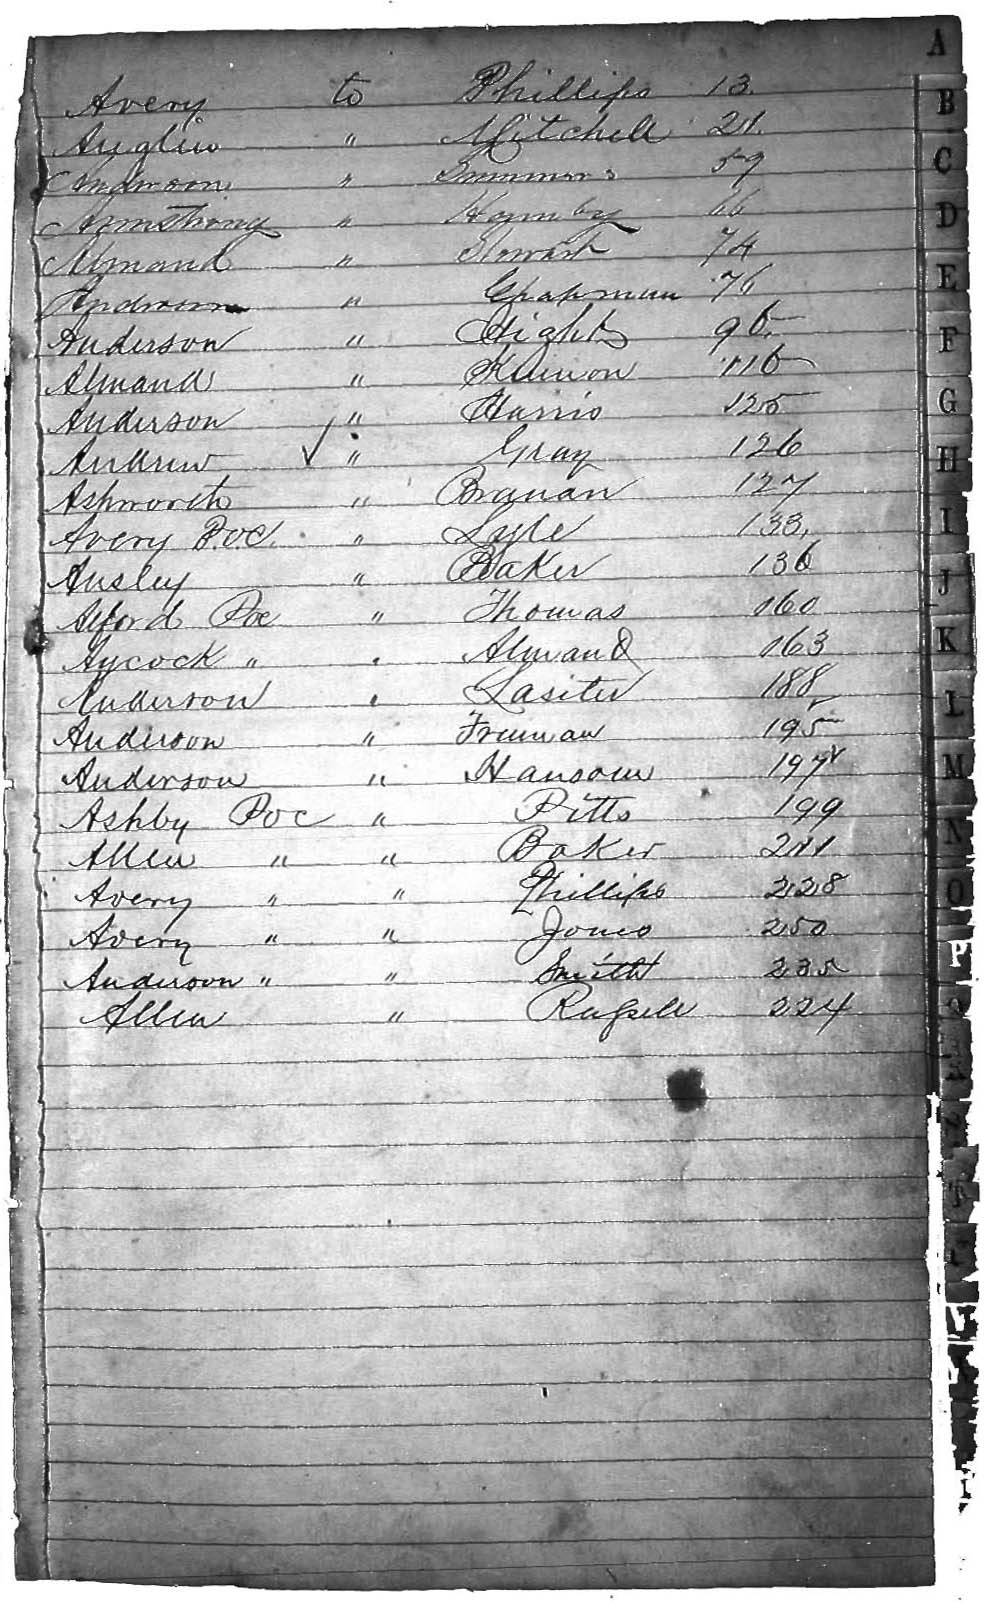 A
Avery to Phillips 13.
Anglin " Mitchell 21.
Anderson " Simmons 59
Armstrong " Hornby 66
Almand " Stewart 74
Anderson " Chapman 76
Anderson " Hight 95
Almand " Kinnon 115
Anderson " Harris 125
Andrew ✓ " Gray 126
Ashworth " Branan 127
Avery P.oc. " Lyle 133.
Ansley " Baker 136
Alford Poc " Thomas 160
Aycock " " Almand 163
Anderson " Lasiter 188
Anderson " Freeman 195
Anderson " Hansom 197
Ashby Poc " Pitts 199
Allen " " Baker 211
Avery " " Phillips 228
Avery " " Jones 250
Anderson " " Smith 235
Allen " 224
B
C
D
E
F
G
H
I
J
K
L
M
N
O
P